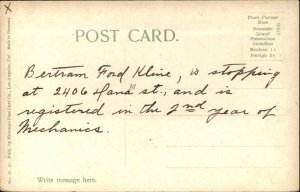 X
POST CARD.
Place Postage
Here
Domestic
Island
Possessions
Canadian
Mexican 1¢
Foreign 2¢
Bertram Ford Kline, is stopping
at 2406 Dana st., and is
registered in the 2nd year of
Mechanics.
Write message here.
Pub. by Newman Post Card Co., Los Angeles, Cal. Made in Germany